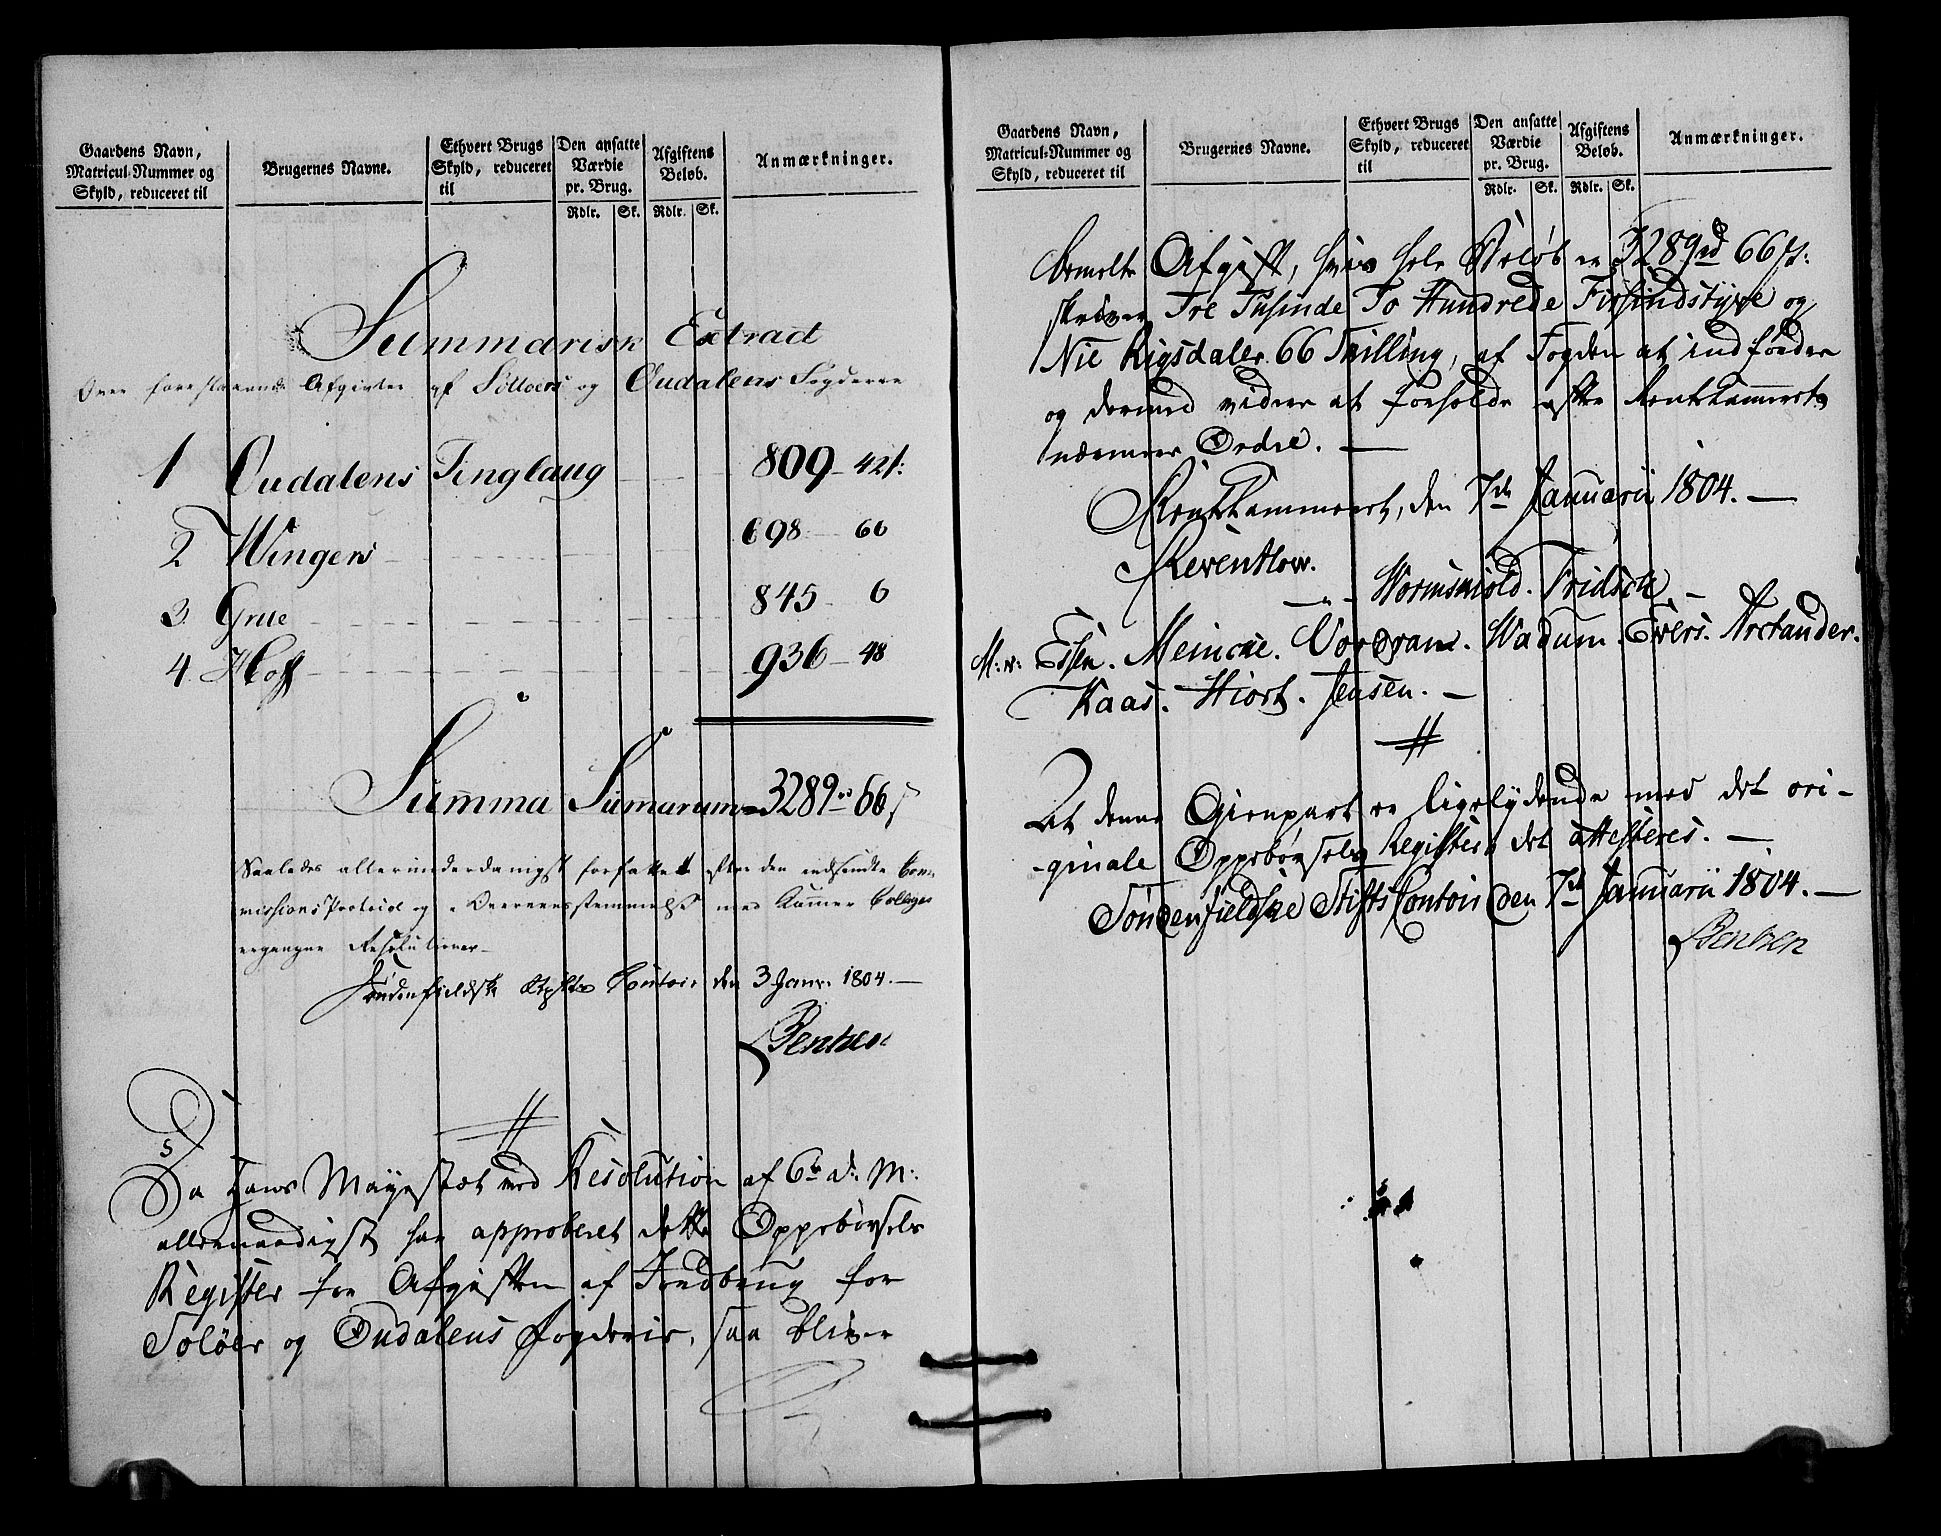 Gaardens Navn,
Matricul-Nummer og
Skyld, reduceret til
Brugernes Navne.
Ethvert Brugs
Skyld, reduceret
til
Den ansatte
Værdie
pr. Brug.
Rdlr. Sk.
Afgiftens
Beløb.
Rdlr. Sk.
Anmærkninger.
Summarisk Extract
Over forestaaende Afgivter af Solloers og Oudalens Fogderie
1 Oudalens Tinglaug 809 - 42 s:
2 Wingers 698 - 66
3 Grue 845 - 6
4 Hoff 936 - 48
Summa Sumarum 3289 rd 66 s
Saaledes allerunderdanigst forfattet efter den indsendte Com-
missions Protocol og i Overeensstemmelse med Kammer Collegii
ergangne Resolutioner.
Søndenfieldske Stifts Contoir den 3 Janr. 1804. —
Bentzen
Da Hans Mayestæt ved Resolution af 6te d: M:
allernaadigst har approberet dette Oppebørsels
Register for Afgiften af Jordbrug for
Soløer og Oudalens Fogderie, saa bliver
Gaardens Navn,
Matricul-Nummer og
Skyld, reduceret til
Brugernes Navne.
Ethvert Brugs
Skyld, reduceret
til
Den ansatte
Værdie
pr. Brug.
Rdlr. Sk.
Afgiftens
Beløb.
Rdlr. Sk.
Anmærkninger.
bemelte Afgift, hvis hele Beløb er 3289 rd 66 s:
skriver Tre Tusinde To Hundrede Firsindstyve og
Nie Rigsdaler 66 Skilling, af Fogden at indfordre
og dermed videre at forholde efter Rentekammerets
nærmere Ordre. —
Rentekammeret, den 7de Januarii 1804. —
Reventlow.
Wormskiold. Fridsch.
M: v: Essen. Meincke. Wadum. Ewers. Arctander.
Kaas. Hiort. Jensen. —
At denne Gienpart er ligelydende med det ori-
ginale Oppebørsels Register, det attesteres. —
Søndenfieldske Stifts Contoir den 7de Januarii 1804. —
Bentzen